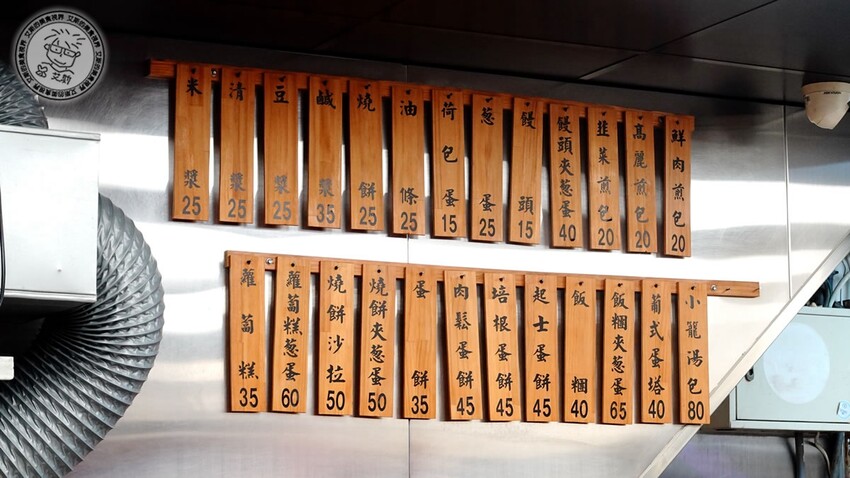 鮮肉煎包 20
高麗煎包 20
韭菜煎包 20
饅頭夾葱蛋 40
饅頭 15
葱蛋 25
荷包蛋 15
油條 25
燒餅 25
鹹漿 35
豆漿 25
清漿 25
米漿 25
小籠湯包 80
葡式蛋塔 40
飯糰夾葱蛋 65
飯糰 40
起士蛋餅 45
培根蛋餅 45
肉鬆蛋餅 45
蛋餅 35
燒餅夾葱蛋 50
燒餅沙拉 50
蘿蔔糕葱蛋 60
蘿蔔糕 35